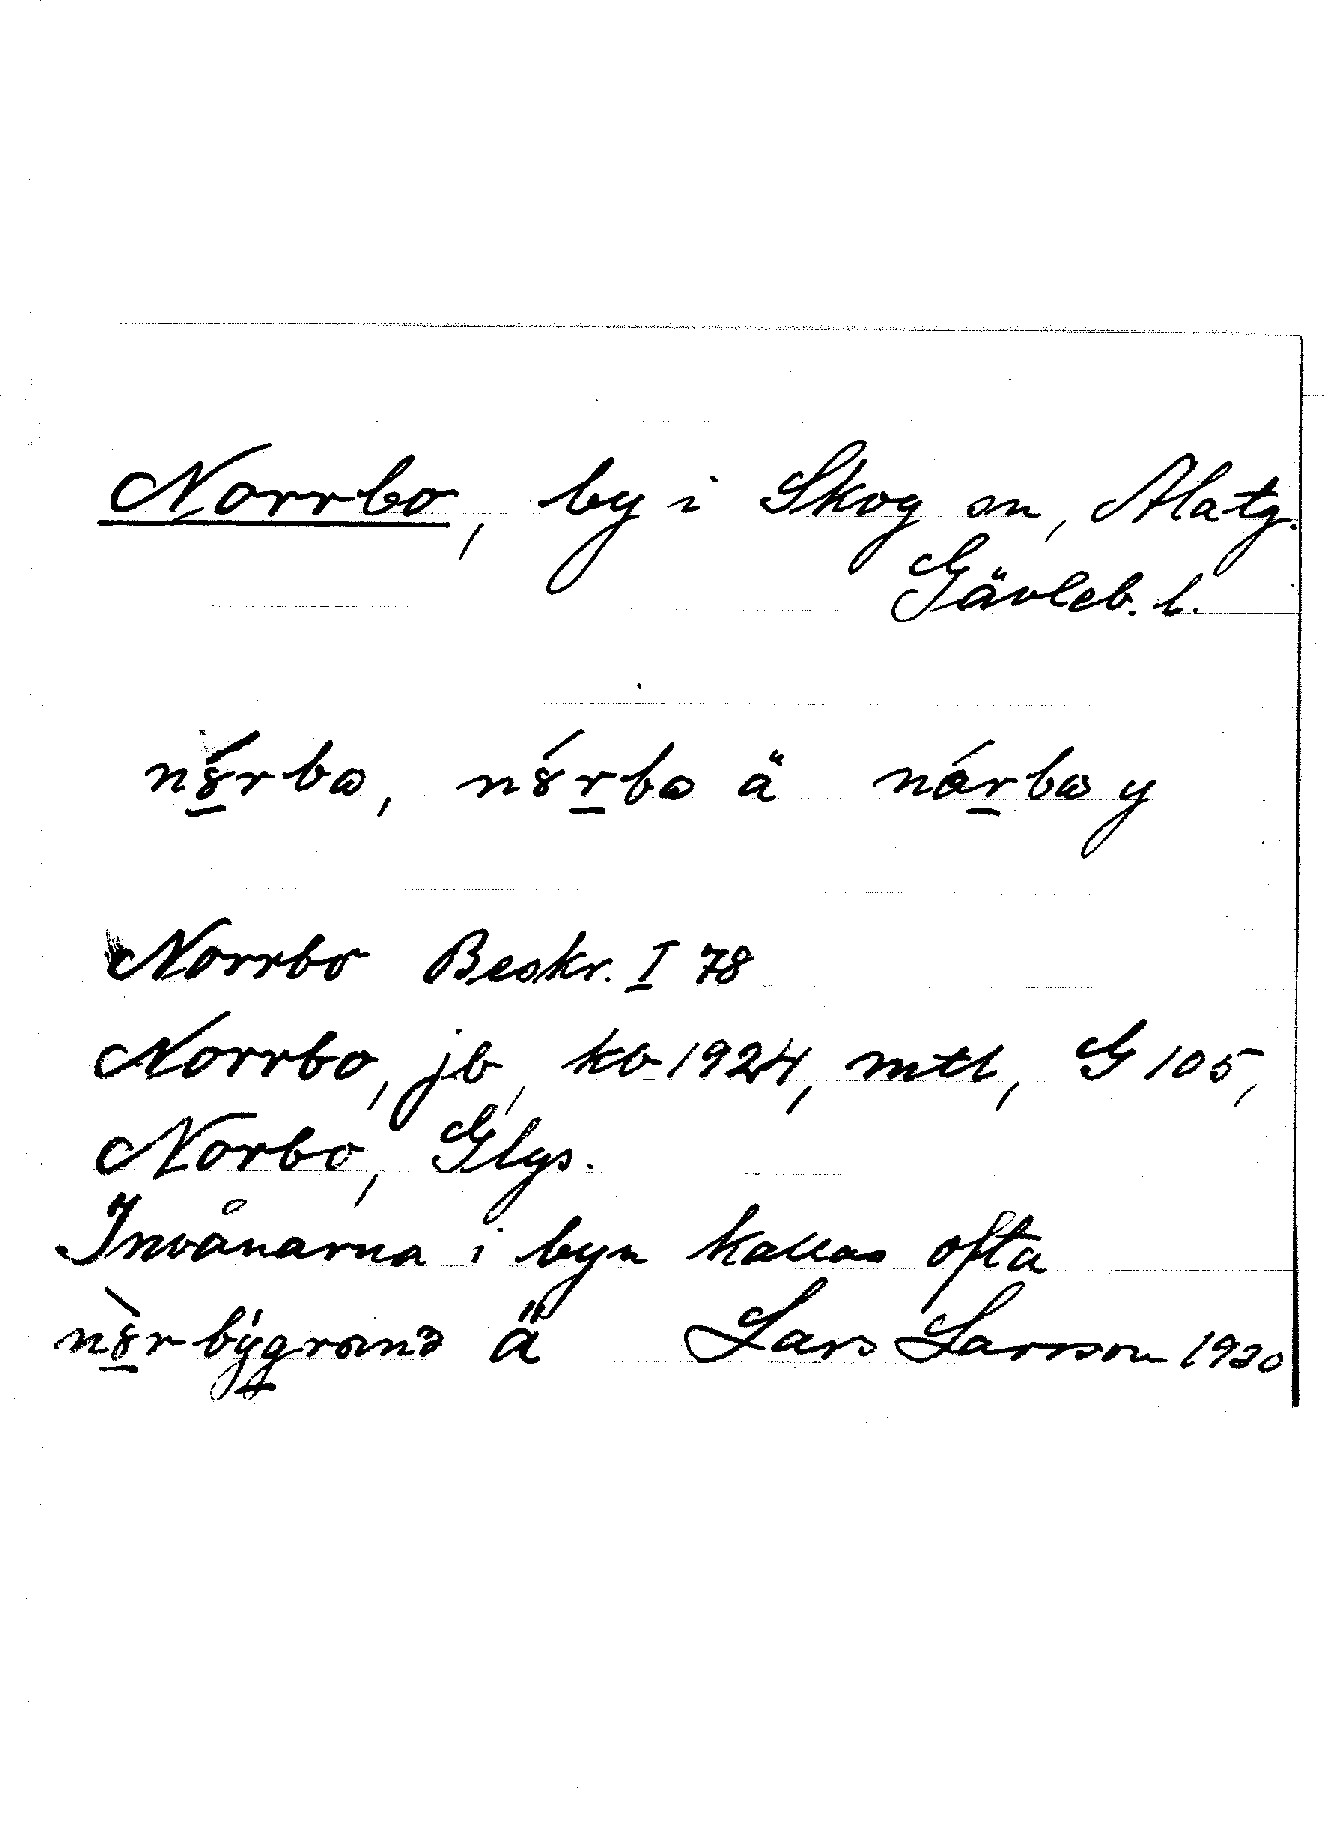 Norrbo, by i Skog sn, Alatg.
Gävleb. l.
nó̱rbω, nórbω ä nárbω y
Norrbo Beskr. I 78
Norrbo, jb, kb 1924, mtl, G 105,
Norbo, Glys.
Invånarna i byn kallas ofta
ä Lars Larsson 1930